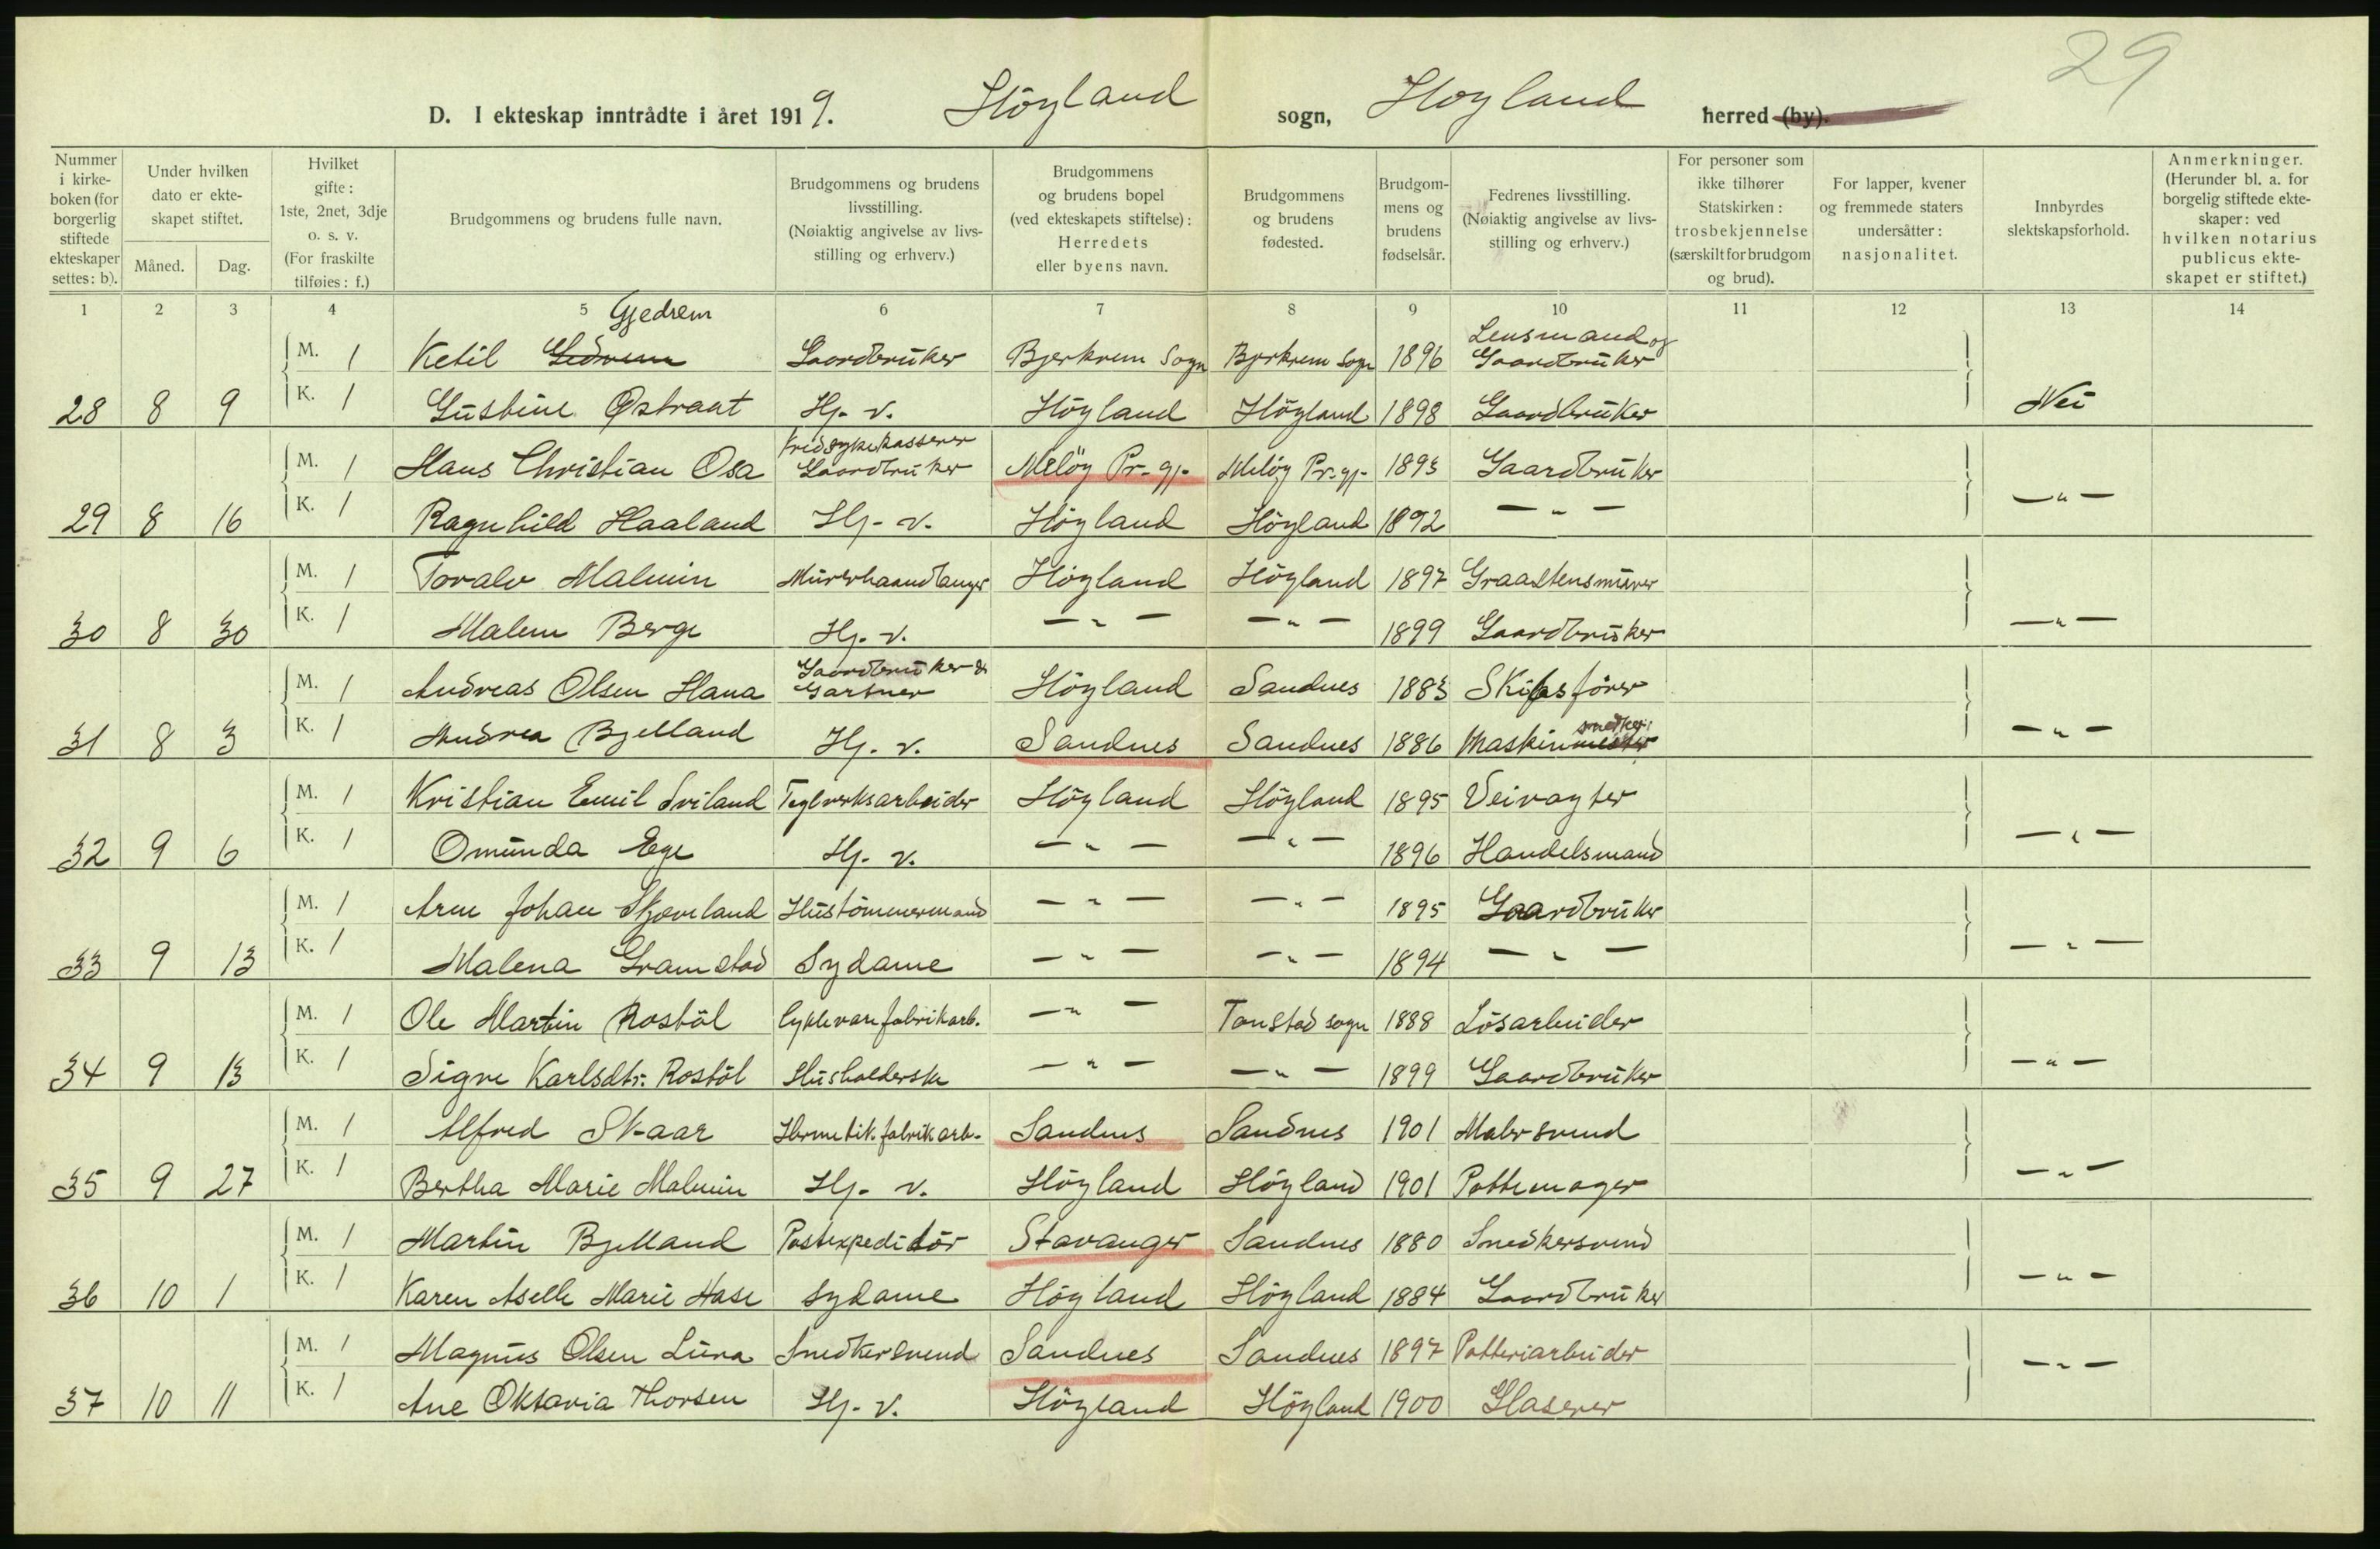 29
D. I ekteskap inntrådte i året 1919. Höyland sogn, Høyland herred (by).
Nummer i kirkeboken (for borgerlig stiftede ekteskaper settes: b). | Under hvilken dato er ekteskapet stiftet. Måned. Dag. | Hvilket gifte: 1ste, 2net, 3dje o. s. v. (For fraskilte tilføies: f.) | Brudgommens og brudens fulle navn. | Brudgommens og brudens livsstilling. (Nøiaktig angivelse av livsstilling og erhverv.) | Brudgommens og brudens bopel (ved ekteskapets stiftelse): Herredets eller byens navn. | Brudgommens og brudens fødested. | Brudgommens og brudens fødselsår. | Fedrenes livsstilling. (Nøiaktig angivelse av livsstilling og erhverv.) | For personer som ikke tilhører Statskirken: trosbekjennelse (særskilt for brudgom og brud). | For lapper, kvener og fremmede staters undersåtter: nasjonalitet. | Innbyrdes slektskapsforhold. | Anmerkninger. (Herunder bl. a. for borgerlig stiftede ekteskaper: ved hvilken notarius publicus ekteskapet er stiftet.)
1 2 3 4 5 6 7 8 9 10 11 12 13 14
M. 1 Ketil Gjedrem Gaardbruker Bjerkrem Sogn Bjerkrem Sogn 1896 Lensmand og Gaardbruker
28 8 9 K. 1 Gustine Østraat Hj. v. Höyland Höyland 1898 Gaardbruker Nei
M. 1 Hans Christian Osa Kredsykekasserer Gaardbruker Melöy Pr. gj. Melöy Pr. gj. 1893 Gaardbruker
29 8 16 K. 1 Ragnhild Haaland Hj. v. Höyland Höyland 1892 — " — — " —
M. 1 Toralv Malmin Murerhaandlanger Höyland Höyland 1897 Graastensmurer
30 8 30 K. 1 Malene Berge Hj. v. — " — — " — 1899 Gaardbruker — " —
M. 1 Andreas Olsen Hana Gaardbruker & Gartner Höyland Sandnes 1883 Skibsfører
31 8 3 K. 1 Andrea Bjelland Hj. v. Sandnes Sandnes 1886 Maskinsnedker — " —
M. 1 Kristian Emil Sviland Teglverksarbeider Höyland Höyland 1895 Veivogter
32 9 6 K. 1 Omunda Ege Hj. v. — " — — " — 1896 Handelsmand — " —
M. 1 Arne Johan Skjæveland Hustömmermand — " — — " — 1895 Gaardbruker
33 9 13 K. 1 Malena Gramstad Sydame — " — — " — 1894 — " — — " —
M. 1 Ole Martin Rostöl Cyklevarefabrikarb. — " — Tonstad sogn 1888 Lösarbeider
34 9 13 K. 1 Signe Karlsdtr. Rostöl Husholderske — " — — " — 1899 Gaardbruker — " —
M. 1 Alfred Skaar Hermetik.fabrikarb. Sandnes Sandnes 1901 Malersvend
35 9 27 K. 1 Bertha Marie Malmin Hj. v. Höyland Höyland 1901 Pottemager — " —
M. 1 Martin Bjelland Postexpeditör Stavanger Sandnes 1880 Snedkersvend
36 10 1 K. 1 Karen Aselle Marie Hase Sydame Höyland Höyland 1884 Gaardbruker — " —
M. 1 Magnus Olsen Lura Snedkersvend Sandnes Sandnes 1897 Potteriarbeider
37 10 11 K. 1 Ane Oktavia Thorsen Hj. v. Höyland Höyland 1900 Glaserer — " —